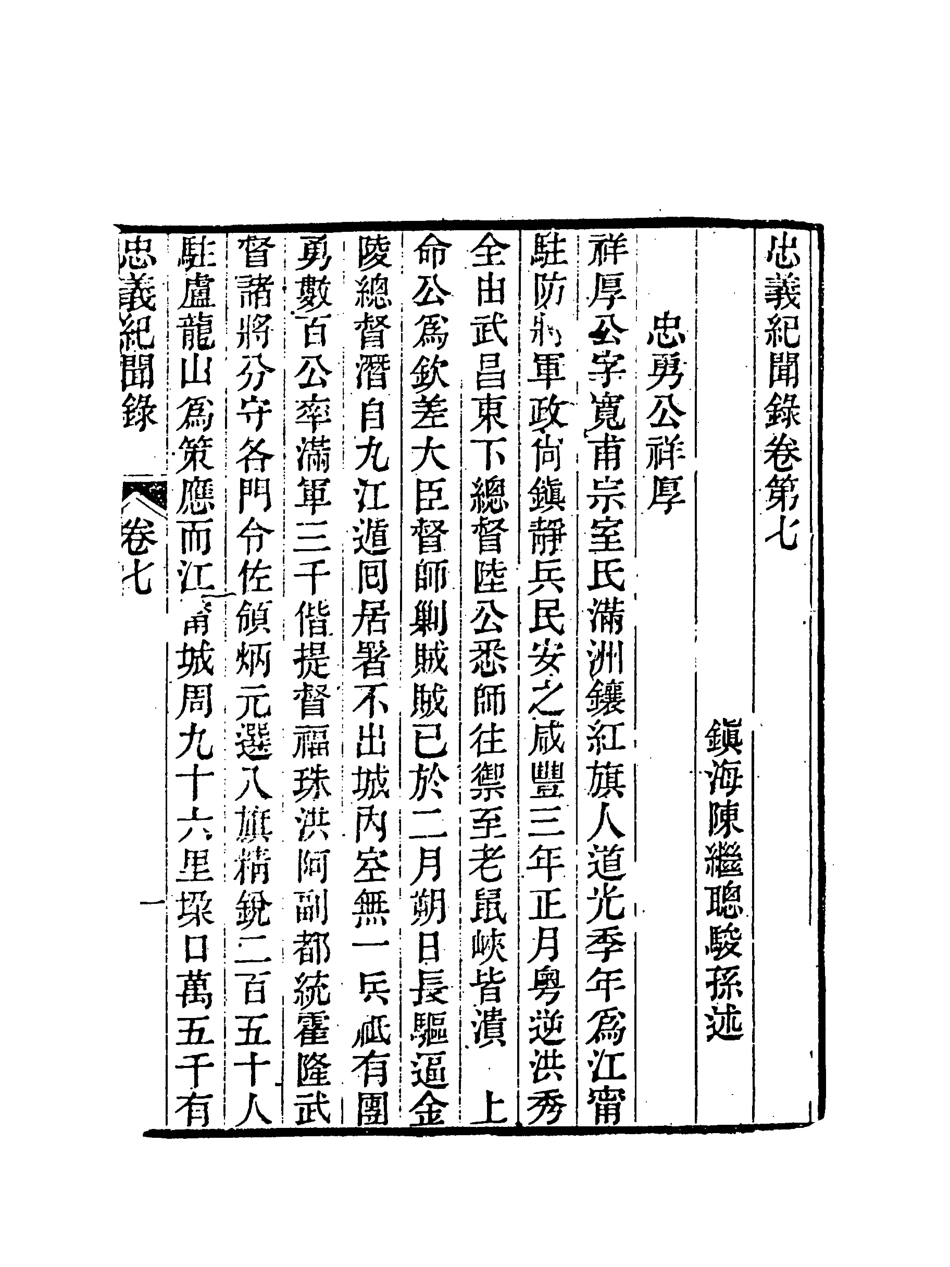 忠義紀聞錄卷第七
鎭海陳繼聰駿孫述
忠勇公祥厚
祥厚公字寬甫宗室氏滿洲鑲紅旗人道光季年爲江甯
駐防將軍政尙鎭靜兵民安之咸豐三年正月粵逆洪秀
全由武昌東下總督陸公悉師往禦至老鼠峽皆潰　上
命公爲欽差大臣督師剿賊賊已於二月朔日長驅逼金
陵總督潛自九江遁囘居署不出城內空無一兵祇有團
勇數百公率滿軍三千偕提督福珠洪阿副都統霍隆武
督諸將分守各門令佐領炳元選八旗精銳二百五十人
駐盧龍山爲策應而江甯城周九十六里垜口萬五千有
忠義紀聞錄　卷七　一